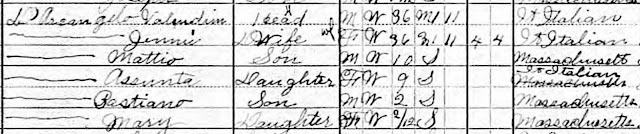 D'Arcangelo Valendim Head M W 36 M1 11 It Italian
Jennie Wife F W 36 M1 11 4 4 It Italian
Mattio Son M W 10 S Massachusetts
Assunta Daughter F W 9 S It Italian Massachusetts
Bastiano Son M W 2 S Massachusetts
Mary Daughter F W /12 S Massachusetts